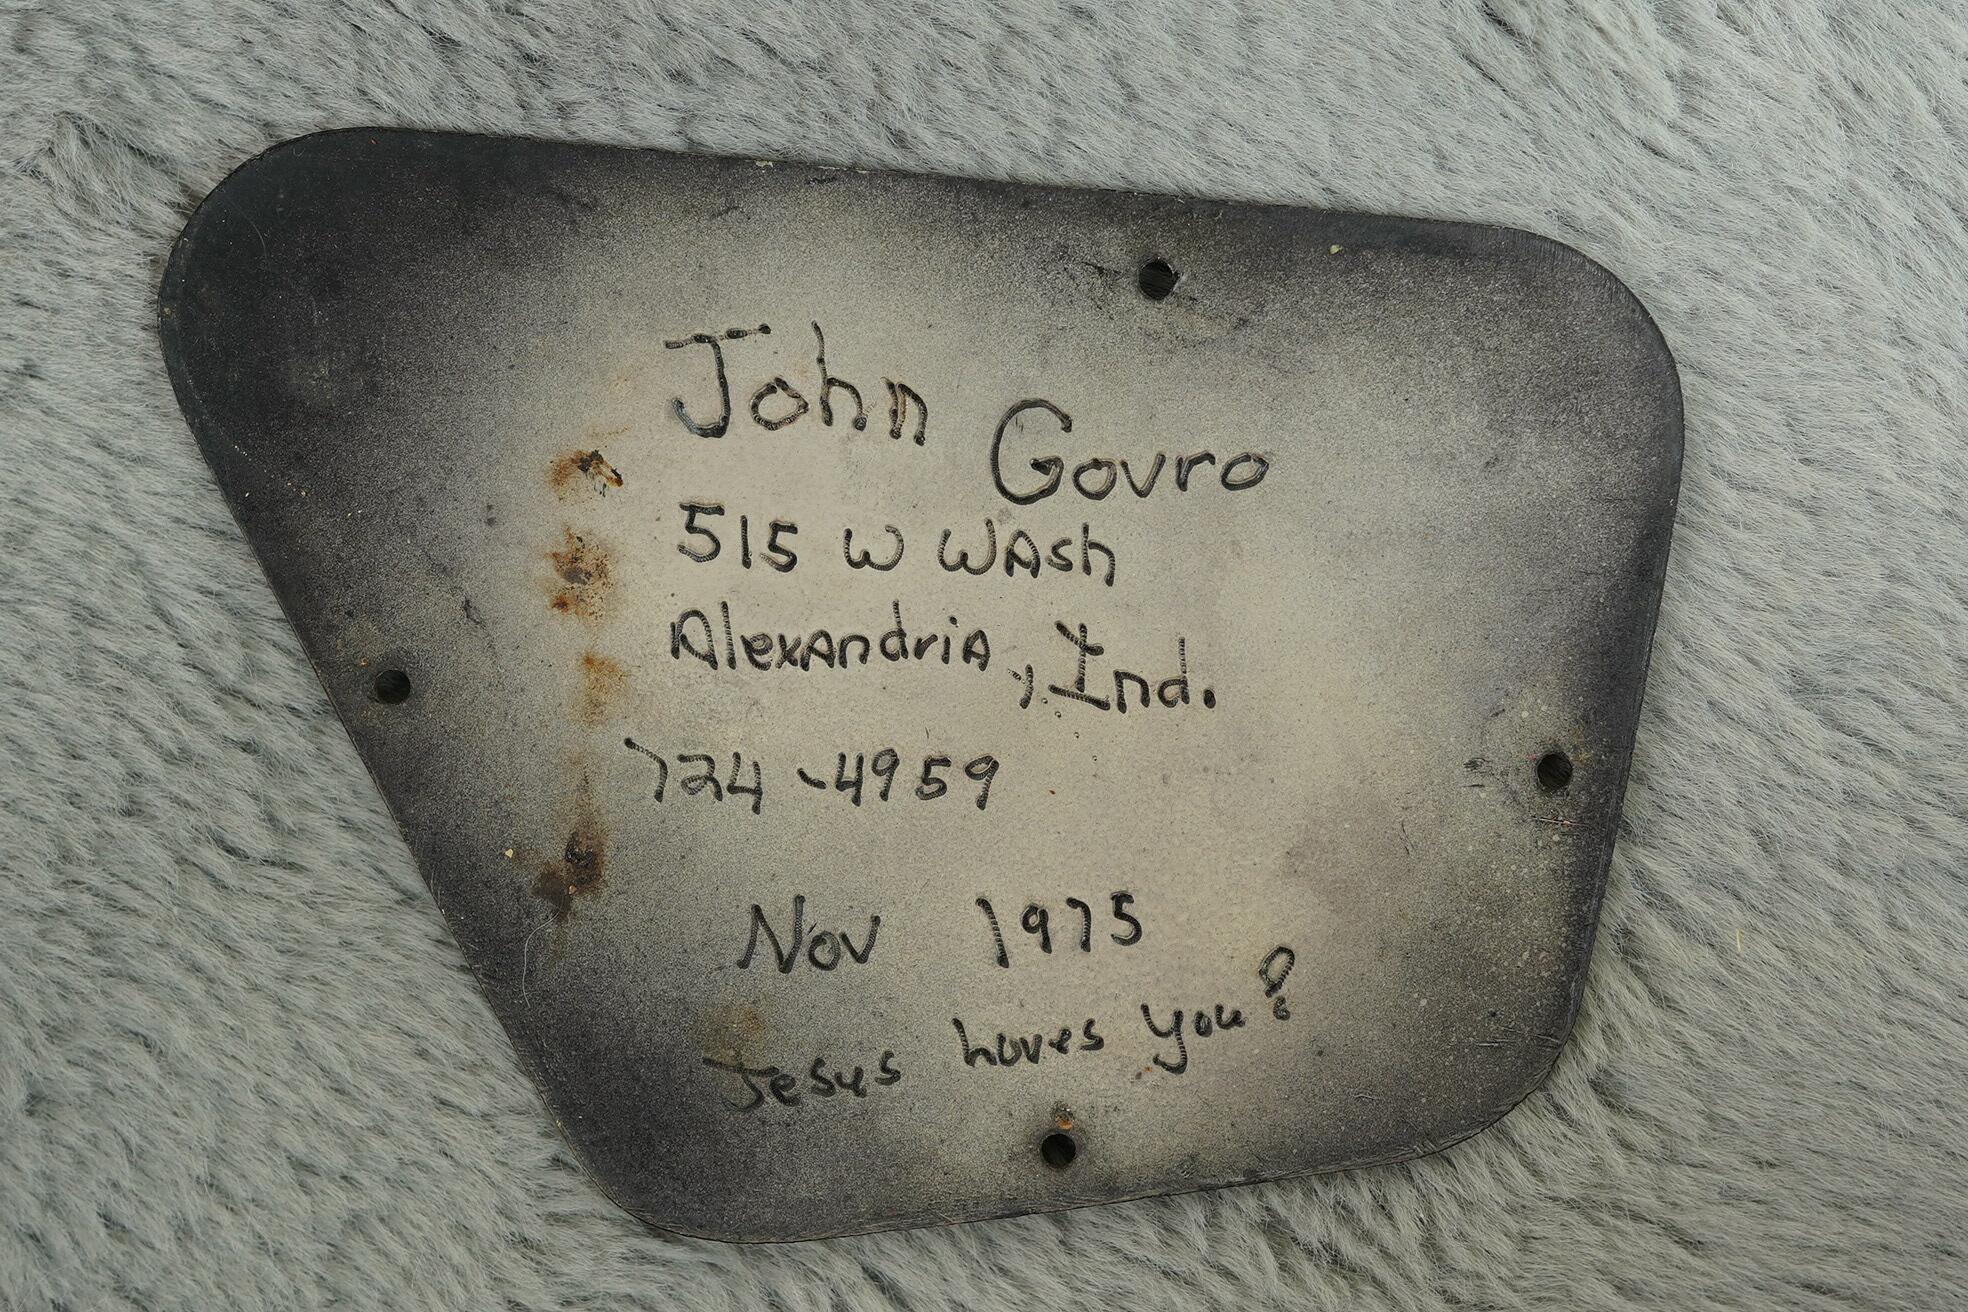 John Govro
515 W WAsh
AlexAndriA, Ind.
724-4959
Nov 1975
Jesus Loves you!